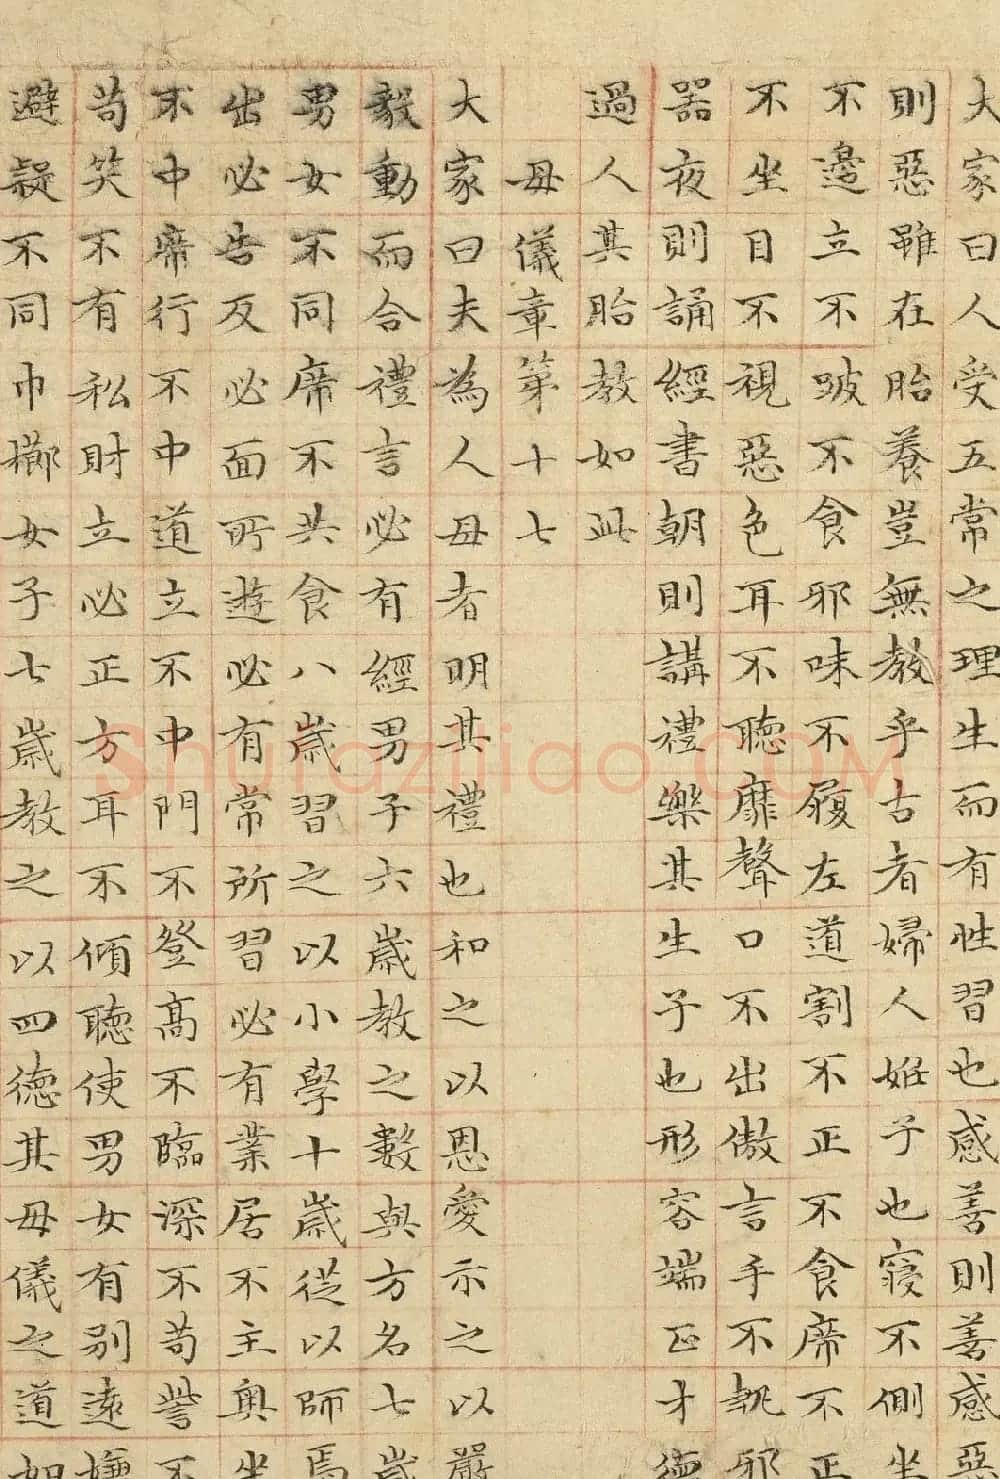 大家曰人受五常之理生而有性習也感善則善感惡
則惡雖在胎養豈無教乎古者婦人姙子也寢不側坐
不邊立不跛不食邪味不履左道割不正不食席不正
不坐目不視惡色耳不聽靡聲口不出傲言手不執邪
器夜則誦經書朝則講禮樂其生子也形容端正才德
過人其胎教如此
母儀章第十七
大家曰夫為人母者明其禮也和之以恩愛示之以嚴
毅動而合禮言必有經男子六歲教之數與方名七歲
男女不同席不共食八歲習之以小學十歲從以師焉
出必告反必面所遊必有常所習必有業居不主奧坐
不中席行不中道立不中門不登高不臨深不苟訾不
苟笑不有私財立必正方耳不傾聽使男女有別遠嫌
避疑不同巾櫛女子七歲教之以四德其母儀之道如
Shufaziliao.COM